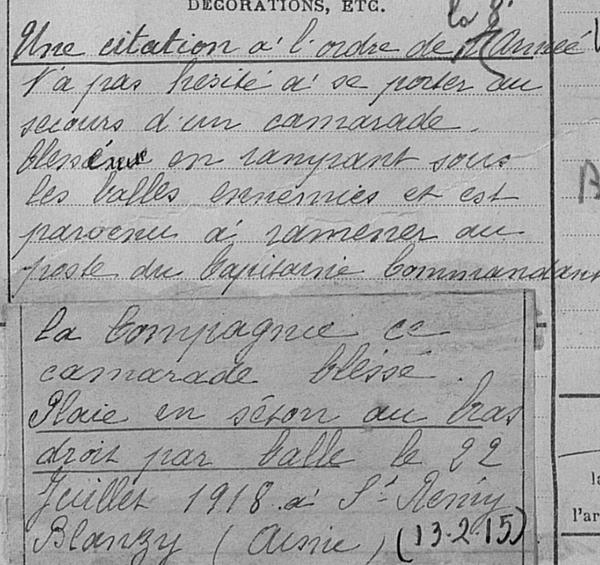 DÉCORATIONS, ETC.
la 8e
Une citation à l'ordre de l'Armée
N'a pas hésité à se porter au
secours d'un camarade
blessé en rampant sous
les balles ennemies et est
parvenu à ramener au
poste du Capitaine Commandant
la Compagnie ce
camarade blessé.
Plaie en séton au bras
droit par balle le 22
Juillet 1918 à St Remy
Blanzy (Aisne) (13.2.15)
la
l'ar